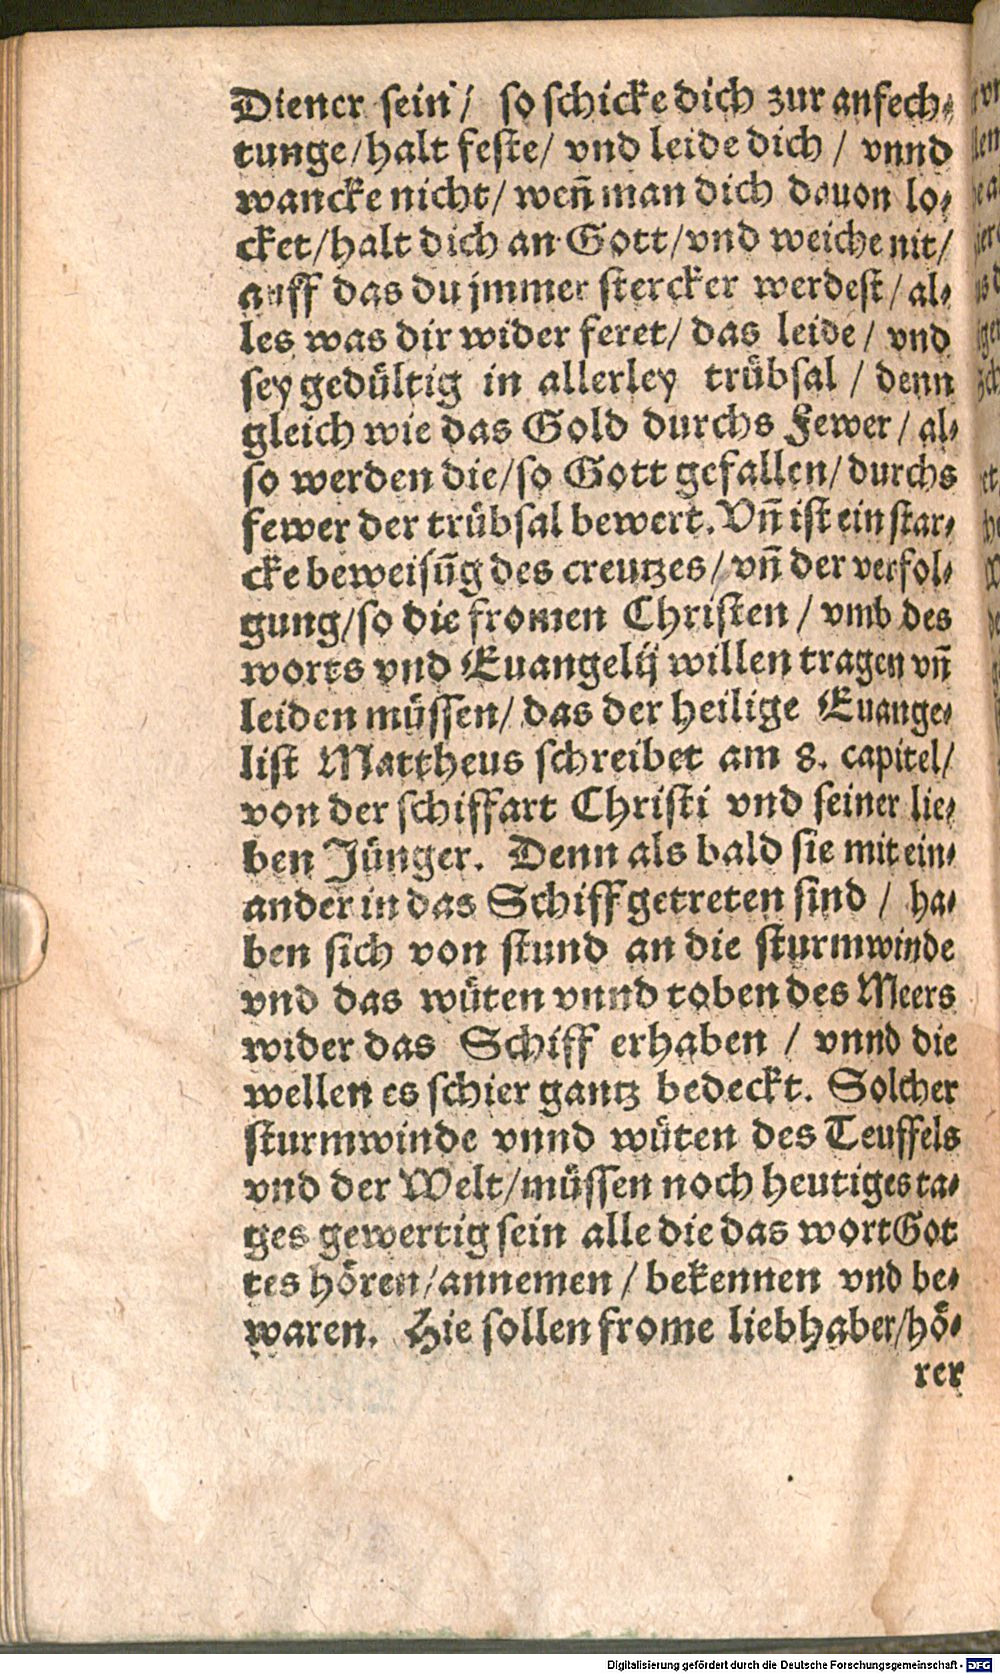 Diener sein / so schicke dich zur anfech⸗
tunge/halt feste/ vnd leide dich / vnnd
wancke nicht/ weñ man dich dauon lo⸗
cket/halt dich an Gott/vnd weiche nit/
auff das du jmmer stercker werdest/ al⸗
les was dir wider feret/ das leide / vnd
sey gedültig in allerley trübsal / denn
gleich wie das Gold durchs Fewer / al⸗
so werden die/so Gott gefallen/ durchs
fewer der trübsal bewert. Vñ ist ein star⸗
cke beweisũg des creutzes/ vñ der verfol⸗
gung/so die fromen Christen / vmb des
worts vnd Euangelij willen tragen vñ
leiden müssen/ das der heilige Euange⸗
list Mattheus schreibet am 8. capitel/
von der schiffart Christi vnd seiner lie⸗
ben Jünger. Denn als bald sie mit ein⸗
ander in das Schiff getreten sind / ha⸗
ben sich von stund an die sturmwinde
vnd das wüten vnnd toben des Meers
wider das Schiff erhaben / vnnd die
wellen es schier gantz bedeckt. Solcher
sturmwinde vnnd wüten des Teuffels
vnd der Welt/müssen noch heutiges ta⸗
ges gewertig sein alle die das wort Got
tes hören/annemen / bekennen vnd be⸗
waren. Hie sollen frome liebhaber/hö⸗
rer
Digitalisierung gefördert durch die Deutsche Forschungsgemeinschaft - DFG